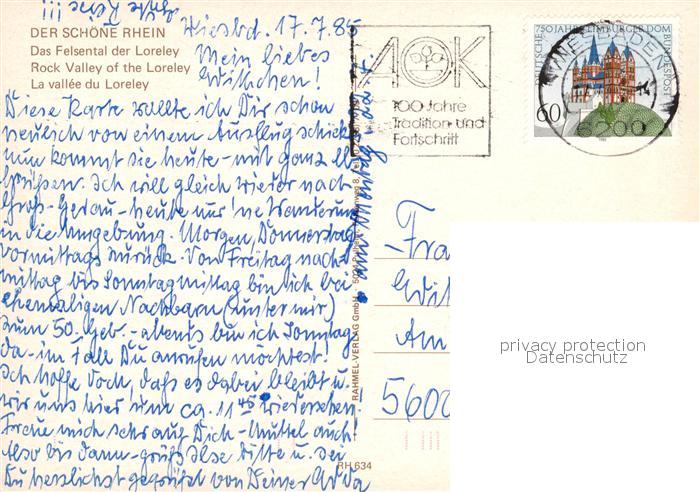 gute Reise !!!
DER SCHÖNE RHEIN
Das Felsental der Loreley
Rock Valley of the Loreley
La vallée du Loreley
Wiesbd. 17.7.85
Mein liebes
Willichen!
Diese Karte wollte ich Dir schon
neulich von einem Ausflug schick
nun kommt sie heute – mit ganz ll
Grüßen. Ich will gleich wieder nach
Groß-Gerau – heute nur 'ne Wanderung
in die Umgebung. Morgen, Donnerstag
vormittags zurück. Von Freitag nach-
mittag bis Sonntagmittag bin ich bei
ehemaligen Nachbarn (unter mir)
zum 50. Geb. – abends bin ich Sonntag
da – im Fall Du anrufen möchtest!
Ich hoffe doch, daß es dabei bleibt u.
wir uns hier um ca. 11 45 wiedersehen.
Freue mich sehr auf Dich – Muttel auch!
Also bis dann – grüß Ilse bitte u. sei
Du herzlichst gegrüßt von Deiner
am Montag
AOK
100 Jahre
Tradition und
Fortschritt
750 JAHRE LIMBURGER DOM
DEUTSCHE BUNDESPOST
60
WIESBADEN
6200
Fra
Wil
Am
5600
RAHMEL-VERLAG GmbH
RH 634
privacy protection
Datenschutz